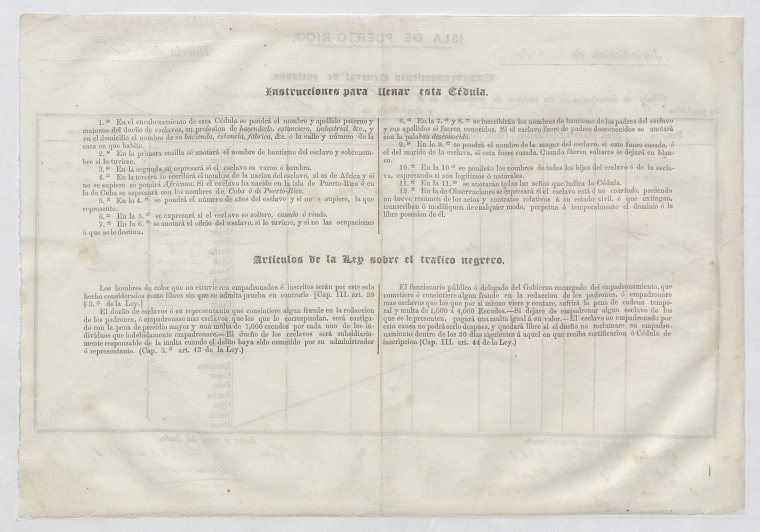 Instrucciones para llenar esta Cédula.
1.ª En el encabezamiento de esta Cédula se pondrá el nombre y apellido paterno y
materno del dueño de esclavos, su profesion de hacendado, estanciero, industrial &c., y
en el domicilio el nombre de su hacienda, estancia, fábrica, &c. ó la calle y número de la
casa en que habita.
2.ª En la primera casilla se anotará el nombre de bautismo del esclavo y sobrenom-
bre si lo tuviere.
3.ª En la segunda se expresará si el esclavo es varon ó hembra.
4.ª En la tercera se escribirá el nombre de la nacion del esclavo, si es de Africa y si
no se supiere se pondrá Africano. Si el esclavo ha nacido en la isla de Puerto-Rico ó en
la de Cuba se espresará con los nombres de Cuba ó de Puerto-Rico.
5.ª En la 4.ª se pondrá el número de años del esclavo y si no se supiere, la que
represente.
6.ª En la 5.ª se expresará si el esclavo es soltero, casado ó viudo.
7.ª En la 6.ª se anotará el oficio del esclavo, si lo tuviere, y si no las ocupaciones
á que se le destina.
8.ª En la 7.ª y 8.ª se inscribirán los nombres de bautismo de los padres del esclavo
y sus apellidos si fueren conocidos. Si el esclavo fuere de padres desconocidos se anotará
con la palabra desconocido.
9.ª En la 9.ª se pondrá el nombre de la muger del esclavo, si este fuere casado, ó
el del marido de la esclava, si esta fuere casada. Cuando fueren solteros se dejará en blan-
co.
10.ª En la 10.ª se pondrán los nombres de todos los hijos del esclavo ó de la escla-
va, expresando si son legítimos ó naturales.
11.ª En la 11.ª se anotarán todas las señas que indica la Cédula.
12.ª En la de Observaciones se espresará si el esclavo está ó no coartado, poniendo
un breve resúmen de los actos y contratos relativos á su estado civil, ó que extingan,
transcriban ó modifiquen de cualquier modo, perpetua ó temporalmente el dominio ó la
libre posesion de él.
Artículos de la Ley sobre el trafico negrero.
Los hombres de color que no estuvieren empadronados ó inscritos serán por este solo
hecho considerados como libres sin que se admita prueba en contrario [Cap. III. art. 38
§ 3.º de la Ley.]
El dueño de esclavos ó su representante que consintiere algun fraude en la redaccion
de los padrones, ó empadronase mas esclavos que los que le correspondan, será castiga-
do con la pena de presidio mayor y una multa de 1,000 escudos por cada uno de los in-
dividuos que indebidamente empadronare.—El dueño de los esclavos será subsidiaria-
mente responsable de la multa cuando el delito haya sido cometido por su administrador
ó representante. (Cap. 3.º art. 43 de la Ley.)
El funcionario público ó delegado del Gobierno encargado del empadronamiento, que
cometiere ó consintiere algun fraude en la redaccion de los padrones, ó empadronare
mas esclavos que los que por sí mismo viere y contare, sufrirá la pena de cadena tempo-
ral y multa de 1,000 á 4,000 Escudos.—Si dejare de empadronar algun esclavo de los
que se le presenten, pagará una multa igual á su valor.—El esclavo no empadronado por
esta causa no podrá serlo despues, y quedará libre si el dueño no reclamare su empadro-
namiento dentro de los 30 dias siguientes á aquel en que reciba certificacion ó Cédula de
inscripcion (Cap. III. art. 44 de la Ley.)